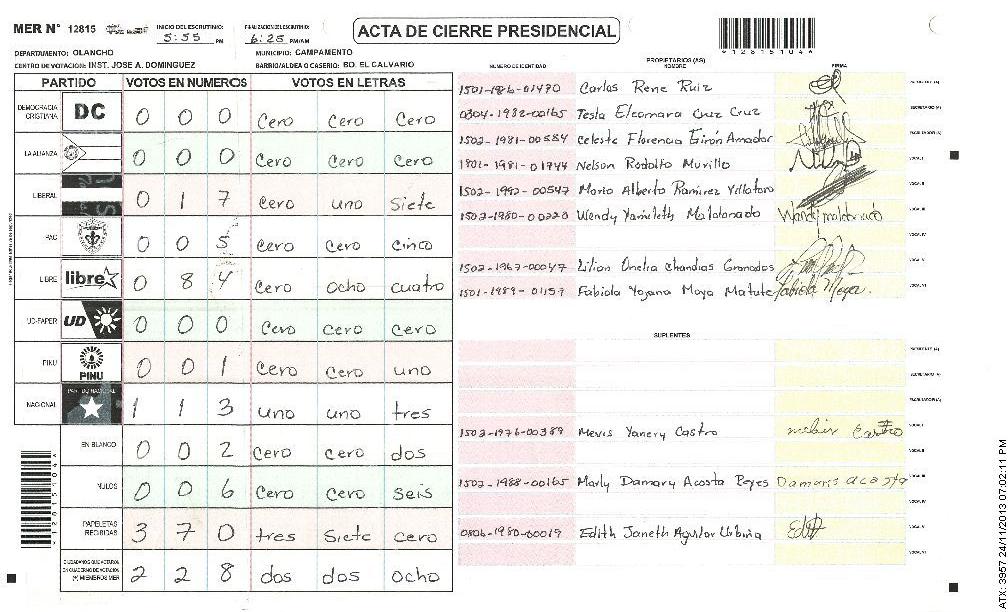 MER N° 12815 INICIO DEL ESCRUTINIO: 5:55 PM FINALIZACION DEL ESCRUTINIO: 6:25 PM/AM
ACTA DE CIERRE PRESIDENCIAL
*12815104*
DEPARTAMENTO: OLANCHO MUNICIPIO: CAMPAMENTO
CENTRO DE VOTACION: INST. JOSE A. DOMINGUEZ BARRIO/ALDEA O CASERIO: BO. EL CALVARIO
PARTIDO VOTOS EN NUMEROS VOTOS EN LETRAS
DEMOCRACIA CRISTIANA DC 0 0 0 Cero Cero Cero
LA ALIANZA 0 0 0 Cero Cero Cero
LIBERAL 0 1 7 Cero uno Siete
PAC 0 0 5 Cero Cero Cinco
LIBRE libre 0 8 4 Cero ocho cuatro
UD-FAPER UD 0 0 0 Cero Cero Cero
PINU PINU 0 0 1 Cero Cero uno
NACIONAL PARTIDO NACIONAL 1 1 3 uno uno tres
EN BLANCO 0 0 2 Cero Cero dos
NULOS 0 0 6 Cero Cero Seis
PAPELETAS RECIBIDAS 3 7 0 tres Siete Cero
CIUDADANOS QUE VOTARON EN CUADERNO DE VOTACION (+) MIEMBROS MER 2 2 8 dos dos ocho
PROPIETARIOS (AS)
NUMERO DE IDENTIDAD NOMBRE FIRMA
1501-1986-01470 Carlos Rene Ruiz
0304-1982-00165 Tesla Eleomara Cruz Cruz
1502-1981-00584 Celeste Florencia Girón Amador
1801-1981-01744 Nelson Rodolfo Murillo
1502-1992-00547 Mario Alberto Ramirez Villatoro
1502-1980-00220 Wendy Yamileth Maldonado Wendy maldonado
1502-1967-00047 Lilian Onelia Chandias Granados
1501-1989-01157 Fabiola Yojana Moya Matute Fabiola Moya.
SUPLENTES
1502-1976-00389 Mevis Yanery Castro
1502-1988-00165 Marly Damary Acosta Reyes Damaris acosta
0806-1980-00019 Edith Janeth Aguilar Urbina
ATX: 3957 24/11/2013 07:02:11 PM